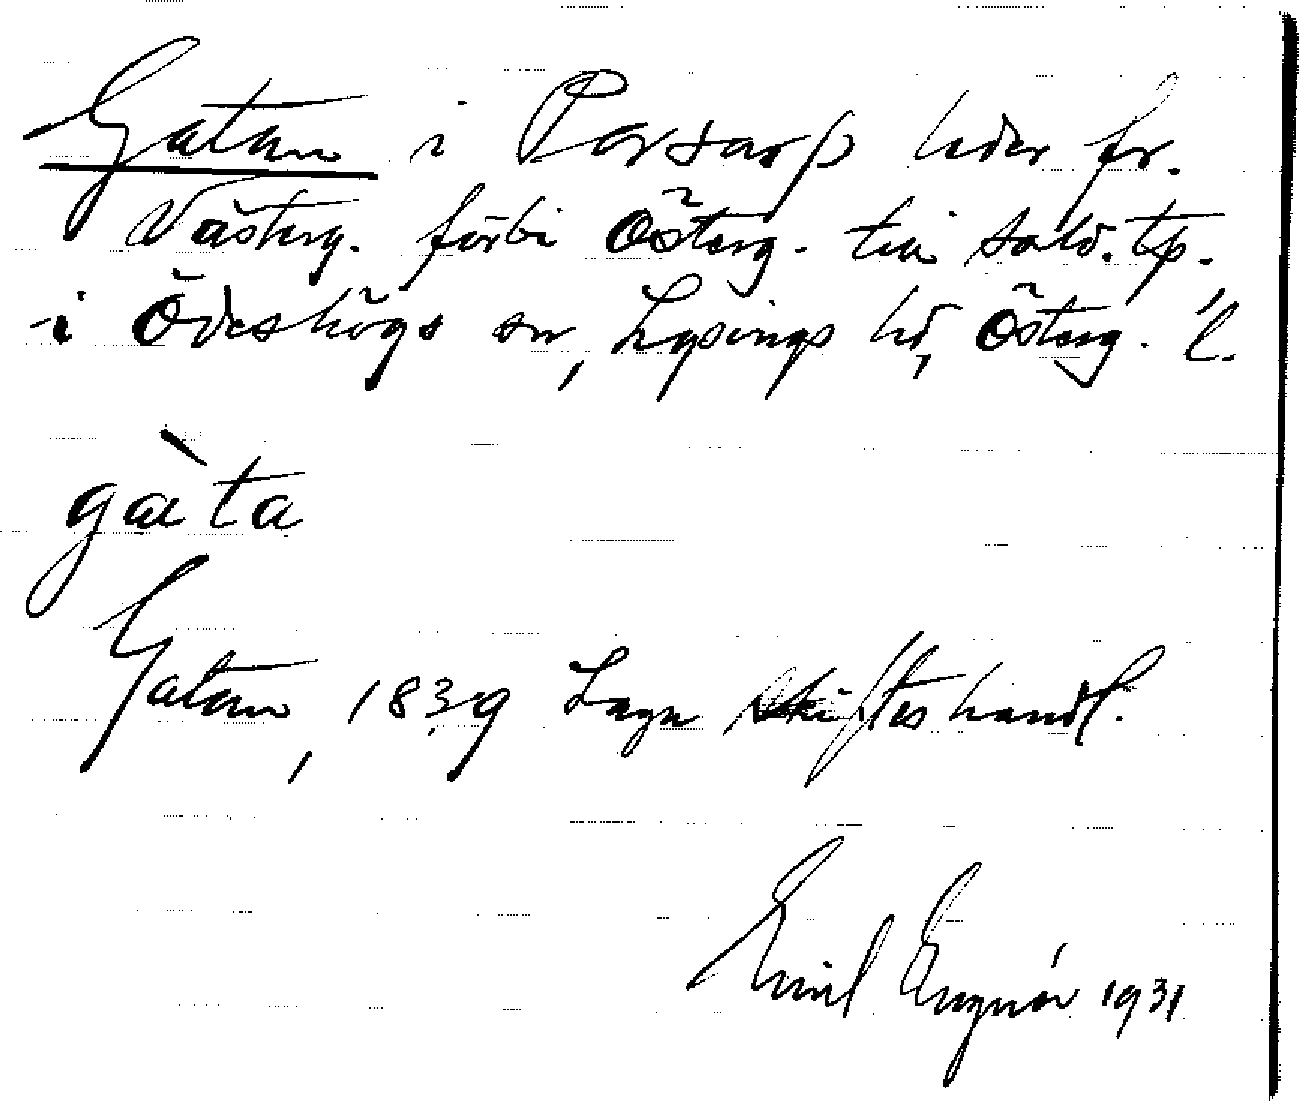 Gatan i Porsarp leder fr.
Västerg. förbi Österg. till sold. tp.
i Ödeshögs sn, Lysings hd, Österg. l.
gàta
Gatan, 1839 Laga skifteshandl.
Emil Engnér 1931